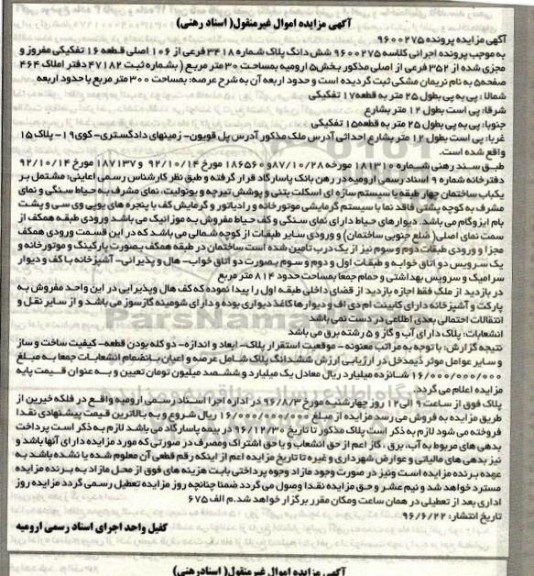 آگهی مزایده اموال غیرمنقول( اسناد رهنی)
آگهی مزایده پرونده ۹۶۰۰۲۷۵
به موجب پرونده اجرائی کلاسه ۹۶۰۰۲۷۵ شش دانگ پلاک شماره ۳۴۱۸ فرعی از ۱۰۶ اصلی قطعه ۱۶ تفکیکی مفروز و
مجزی شده از ۳۵۲ فرعی از اصلی مذکور بخش۵ ارومیه بمساحت ۳۰۰ متر مربع ( بشماره ثبت ۴۷۱۸۲ دفتر املاک ۴۶۴
صفحه۵ به نام نریمان مشکی ثبت گردیده است و حدود اربعه آن به شرح عرصه: بمساحت ۳۰۰ متر مربع با حدود اربعه
شمالا : پی به پی بطول ۲۵ متر به قطعه۱۷ تفکیکی
شرقا: پی است بطول ۱۲ متر بشارع
جنوبا: پی به پی بطول ۲۵ متر به قطعه۱۵ تفکیکی
غربا: پی است بطول ۱۲ متر بشارع احداثی آدرس ملک مذکور آدرس پل قویون- زمینهای دادگستری- کوی۱۹- پلاک ۱۵
واقع شده است.
طبق سند رهنی شماره ۱۸۱۳۱۰ مورخه ۸۷/۱۰/۲۸و ۱۸۶۵۶۰ مورخ ۹۲/۱۰/۱۴ و ۱۸۷۱۳۷ مورخه ۹۲/۱۰/۱۴
دفترخانه شماره ۹ اسناد رسمی ارومیه در رهن بانک پاسارگاد قرار گرفته و طبق نظر کارشناس رسمی اعیانی: مشتمل بر
یکباب ساختمان چهار طبقه با سیستم سازه ای اسکلت بتنی و پوشش تیرچه و یونولیت، نمای مشرف به حیاط سنگی و نمای
مشرف به کوچه پشتی فاقد نما با سیستم گرمایشی موتورخانه و رادیاتور و گرمایش کف با پنجره های یو پی وی سی و پشت
بام ایزوگام می باشد. دیوارهای حیاط دارای نمای سنگی و کف حیاط مفروش به موزائیک می باشد ورودی طبقه همکف از
سمت نمای اصلی( ضلع جنوبی ساختمان) و ورودی سایر طبقات از کوچه شمالی می باشد که در این قسمت ورودی همکف
مجزا و ورودی طبقات دوم و سوم نیز از یک درب تامین شده است ساختمان در طبقه همکف بصورت پارکینگ و موتورخانه و
یک سرویس دو اتاق خوابه و طبقات اول و دوم و سوم بصورت دو اتاق خواب- هال و پذیرائی- آشپزخانه با کف و دیوار
سرامیک و سرویس بهداشتی و حمام جمعا بمساحت حدود ۸۱۴ متر مربع
در بازدید از ملک فقط اجازه بازدید از فضای داخلی طبقه اول را پیدا نموده که کف هال و پذیرایی در این واحد مفروش به
پارکت و آشپزخانه دارای کابینت ام دی اف و دیوارها کاغذ دیواری بوده و دارای شومینه گازسوز می باشد و از سایر نقل و
انتقالات احتمالی بعدی اطلاعی در دست نمی باشد
انشعابات: پلاک دارای آب و گاز و ۵ رشته برق می باشد
نتیجه گزارش: با توجه به مراتب معنونه- موقعیت استقرار پلاک- ابعاد و اندازه- دو کله بودن قطعه- کیفیت ساخت و ساز
و سایر عوامل موثر ذیمدخل در ارزیابی ارزش ششدانگ پلاک شامل عرصه و اعیان بانضمام انشعابات جمعا به مبلغ
۱۶/۰۰۰/۰۰۰/۰۰۰ شانزده میلیارد ریال معادل یک میلیارد و ششصد میلیون تومان تعیین و به عنوان قیمت پایه
مزایده اعلام می گردد.
پلاک فوق از ساعت۹ الی ۱۲ روز چهارشنبه مورخ ۹۶/۸/۳ در اداره اجرا اسناد رسمی ارومیه واقع در فلکه خیرین از
طریق مزایده به فروش می رسد مزایده از مبلغ ۱۶/۰۰۰/۰۰۰/۰۰۰ ریال شروع و به بالاترین قیمت پیشنهادی نقدا
فروخته می شود لازم به ذکر است پلاک مذکور تا تاریخ ۹۶/۱۲/۳۰ در بیمه پاسارگاد می باشد لازم به ذکر است پرداخت
بدهی های مربوط به آب، برق، گاز اعم از حق انشعاب و یا حق اشتراک و مصرف در صورتی که مورد مزایده دارای آنها باشد و
نیز بدهی های مالیاتی و عوارض شهرداری و غیره تا تاریخ مزایده اعم از اینکه رقم قطعی آن معلوم شده یا نشده باشد به
عهده برنده مزایده است ونیز در صورت وجود مازاد وجوه پرداختی بابت هزینه های فوق از محل مازاد به برنده مزایده
مسترد خواهد شد و نیم عشر و حق مزایده نقدا وصول می گردد ضمنا چنانچه روز مزایده تعطیل رسمی گردد مزایده روز
اداری بعد از تعطیلی در همان ساعت ومکان مقرر برگزار خواهد شد.م الف ۶۷۵
تاریخ انتشار: ۹۶/۶/۲۲
کفیل واحد اجرای اسناد رسمی ارومیه
آگهی مزایده اموال غیر منقول( اسنادرهنی)